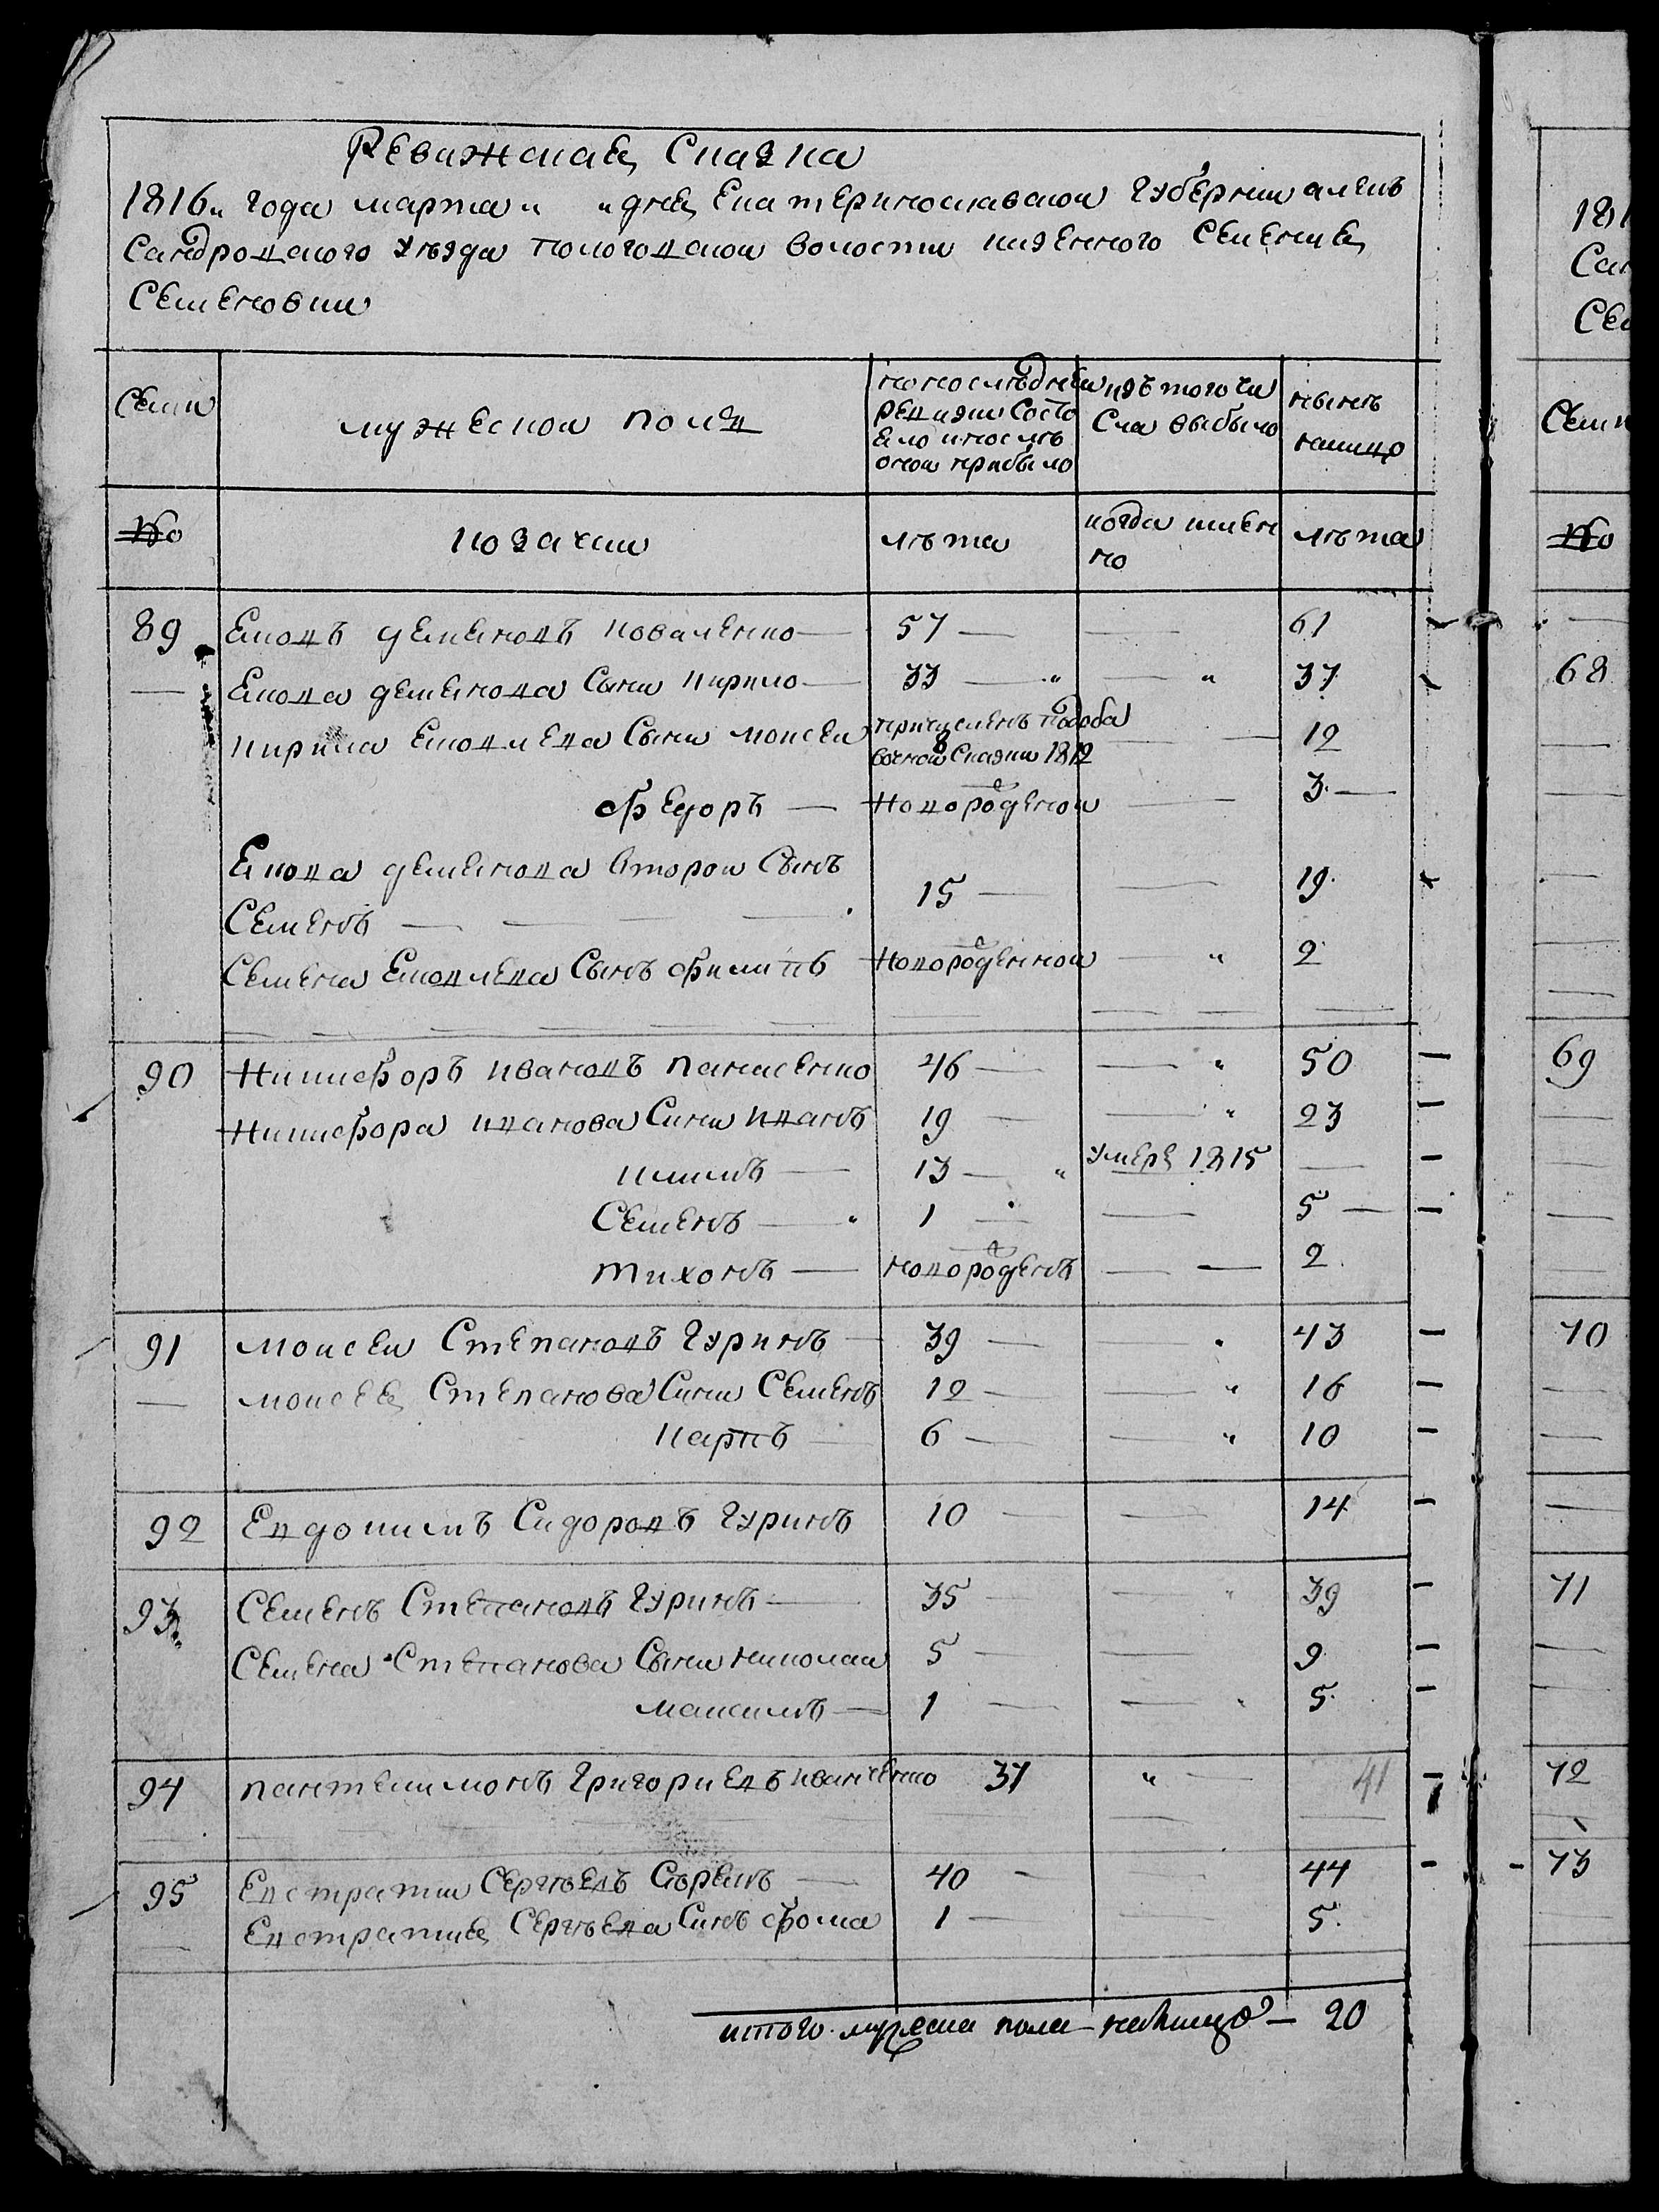 Ревижская Сказка
1816„ года марта „ „ дня Екатеринославской Губернии алекъ
сандровского уезда пологовской волости казенного Селения
Семеновки
Семи
мужеской полъ
по последней
ревизии состо
яло и после
оной прибыло
изъ того чи
сла выбыло
ныне
налицо
№
козаки
лета
когда имен
но
лета
89 Яковъ Деменовъ коваленко — 57 — — 61
— Якова Деменова Сыни кирило — 33 — „ — „ 37
кирила Яковлева Сыни моисей причисленъ по доба
вочной сказки 1812 — 12
федоръ — новорожденой — 3. —
Якова деменова второй Сынъ
Семенъ — — — — 15 — — 19.
Семена Яковлева Сынъ филипъ новорожденной — „ 2
90 Никифоръ ивановъ панасенко 46 — — „ 50 —
Никифора иванова Сини иванъ 19 — — „ 23 —
климъ — 13 — „ умеръ 1815 — —
Семенъ — „ 1 — — 5 — —
тихонъ — новорожденъ — — 2.
91 моисей Степановъ Гуринъ — 39 — — „ 43 —
— моисея Степанова Сини Семенъ 12 — — „ 16 —
карпъ — 6 — — „ 10 —
92 Евдокимъ Сидоровъ Гуринъ 10 — — 14 —
93 Семенъ Степановъ Гуринъ — 35 — — „ 39 —
Семена Степанова Сыни николай 5 — — 9 —
максимъ — 1 — — „ 5. —
94 пантелимонъ Григориевъ иванченко 37 „ — 41 —
95 Евстратий Сергеевъ — 40 — — 44 —
Евстратия Сергеева Синъ фома 1 — — 5.
итого мужеска пола налицо — 20
181
Сан
Сем
Семи
№
68
69
70
71
72
73